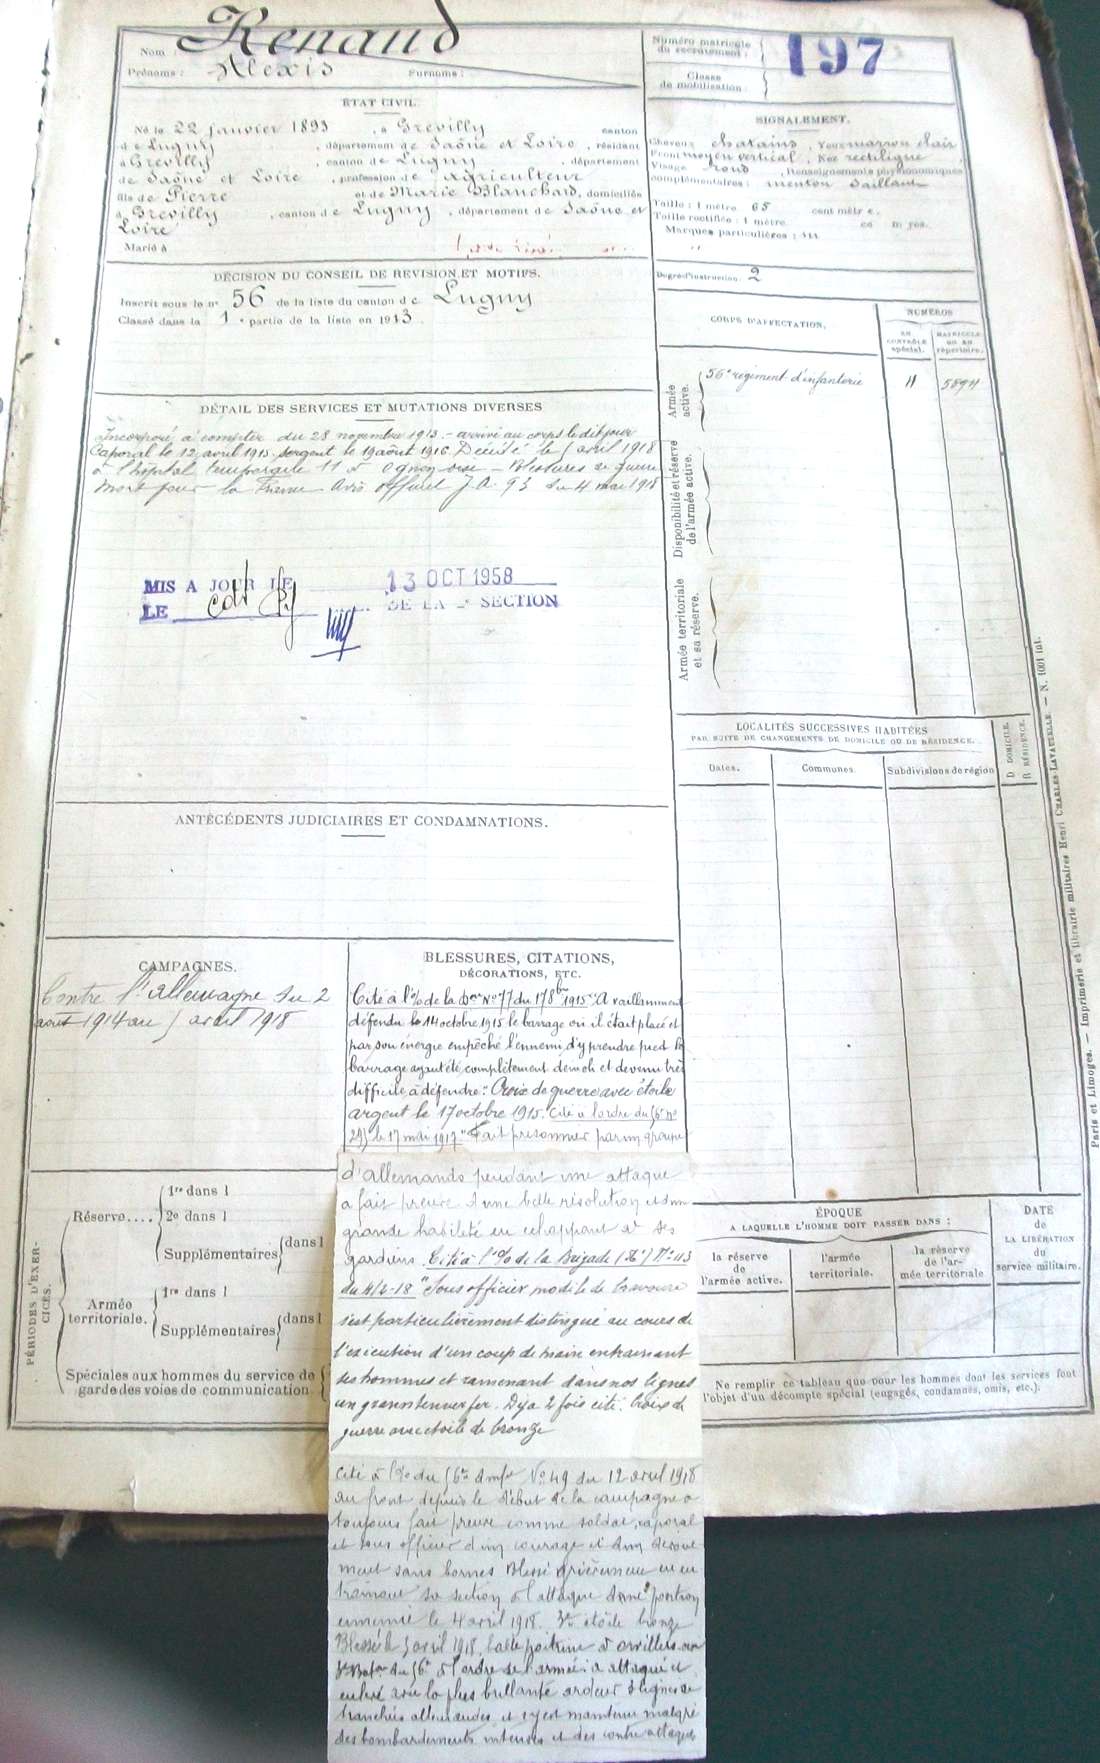 Nom : Renaud
Prénoms : Alexis Surnoms :
Numéro matricule du recrutement : 197
Classe de mobilisation :
ÉTAT CIVIL.
Né le 22 janvier 1893, à Grevilly canton
de Lugny, département de Saône et Loire, résidant
à Grevilly, canton de Lugny, département
de Saône et Loire, profession de Agriculteur
fils de Pierre et de Marie Blanchard, domiciliés
à Grevilly, canton de Lugny, département de Saône et
Loire
Marié à
SIGNALEMENT.
Cheveux chatains, Yeux marron clair
Front moyen vertical, Nez rectiligne,
Visage rond, Renseignements physionomiques
complémentaires : menton saillant
Taille : 1 mètre 65 cent mètre.
Taille rectifiée : 1 mètre
Marques particulières :
Degré d'instruction. 2
DÉCISION DU CONSEIL DE RÉVISION ET MOTIFS.
Inscrit sous le n° 56 de la liste du canton de Lugny
Classé dans la 1e partie de la liste en 1913
CORPS D'AFFECTATION.
NUMÉROS
AU CONTRÔLE spécial.
MATRICULE OU AU répertoire.
Armée active.
56e regiment d'infanterie 11 5894
Disponibilité et réserve de l'armée active.
Armée territoriale et sa réserve.
DÉTAIL DES SERVICES ET MUTATIONS DIVERSES
Incorporé à compter du 28 novembre 1913. - arrivé au corps le dit jour
Caporal le 12 avril 1915. sergent le 19 août 1916. Décédé le 5 avril 1918
à l'hôpital temporaire 11 à Ognon oise - Blessures de guerre
Mort pour la France Avis officiel J.A. 93 du 4 mai 1918
MIS A JOUR LE 13 OCT 1958
LE DE LA SECTION
LOCALITÉS SUCCESSIVES HABITÉES
PAR SUITE DE CHANGEMENTS DE DOMICILE OU DE RÉSIDENCE.
Dates. Communes. Subdivisions de région
D. DOMICILE.
R. RÉSIDENCE.
ANTÉCÉDENTS JUDICIAIRES ET CONDAMNATIONS.
CAMPAGNES.
Contre l'allemagne du 2
août 1914 au 5 avril 1918
BLESSURES, CITATIONS,
DÉCORATIONS, ETC.
Cité à l'% de la Don N° 77 du 17 8bre 1915 "A vaillamment
défendu le 14 octobre 1915 le barrage où il était placé et
par son énergie empêché l'ennemi d'y prendre pied le
barrage ayant été complètement démoli et devenu très
difficile à défendre". Croix de guerre avec étoile
argent le 17 octobre 1915. Cité à l'ordre du 56e n°
295 le 17 mai 1917 "Fait prisonnier par un groupe
d'allemands pendant une attaque
a fait preuve d'une belle résolution et d'une
grande habileté en echappant à ses
gardiens. Cité à l'% de la Brigade N° 113
du 4/2-18 "Sous officier modèle de bravoure
s'est particulièrement distingué au cours de
l'exécution d'un coup de main entrainant
ses hommes et ramenant dans nos lignes
Déja 2 fois cité. Croix de
guerre avec étoile de bronze
cité à l'% du 56e N° 49 du 12 avril 1918
au front depuis le début de la campagne a
toujours fait preuve comme soldat, caporal
et sous officier d'un courage et d'un dévoue
ment sans bornes Blessé grièvement en en
trainant sa section à l'attaque d'une position
ennemie le 4 avril 1918. étoile bronze
Blessé le 5 avril 1918, balle poitrine à
du 56e à l'ordre de l'armée: a attaqué et
enlevé avec la plus brillante ardeur lignes de
tranchées allemandes et s'y est maintenu malgré
des bombardements intenses et des contre attaques
PÉRIODES D'EXERCICES.
Réserve....
1re dans l
2e dans l
Supplémentaires dans l
Armée territoriale.
1re dans l
Supplémentaires dans l
Spéciales aux hommes du service de
garde des voies de communication
ÉPOQUE
A LAQUELLE L'HOMME DOIT PASSER DANS :
la réserve de l'armée active.
l'armée territoriale.
la réserve de l'armée territoriale
DATE de LA LIBÉRATION du service militaire.
Ne remplir ce tableau que pour les hommes dont les services font
l'objet d'un décompte spécial (engagés, condamnés, omis, etc.).
Paris et Limoges. — Imprimerie et librairie militaires Henri CHARLES-LAVAUZELLE. — N. 1001 int.